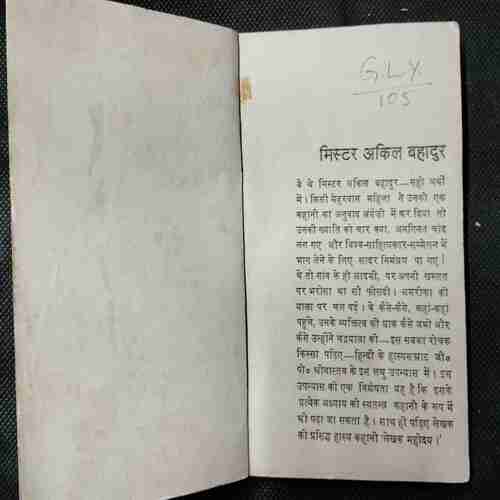 G.L.Y.
105
मिस्टर अकिल बहादुर
ये थे मिस्टर अकिल बहादुर—सही अर्थों
में। किसी मेहरबान महिला ने उनकी एक
कहानी का अनुवाद अंग्रेज़ी में कर दिया तो
उनकी ख्याति को चार क्या, अनगिनत चांद
लग गए और विश्व-साहित्यकार-सम्मेलन में
भाग लेने के लिए सादर निमंत्रण पा गए!
थे तो गांव के ही आदमी, पर अपनी
पर भरोसा था सौ फीसदी। अमरीका की
यात्रा पर चल पड़े। वे कैसे-कैसे, कहां-कहां
पहुंचे, उनके व्यक्तित्व की धाक कैसे जमी और
कैसे उन्होंने चन्द्रयात्रा की—इस सबका रोचक
किस्सा पढ़िए—हिन्दी के हास्यसम्राट जी०
पी० श्रीवास्तव के इस लघु उपन्यास में। इस
उपन्यास की एक विशेषता यह है कि इसके
प्रत्येक अध्याय को स्वतन्त्र कहानी के रूप में
भी पढ़ा जा सकता है। साथ ही पढ़िए लेखक
की प्रसिद्ध हास्य कहानी 'लेखक महोदय।'